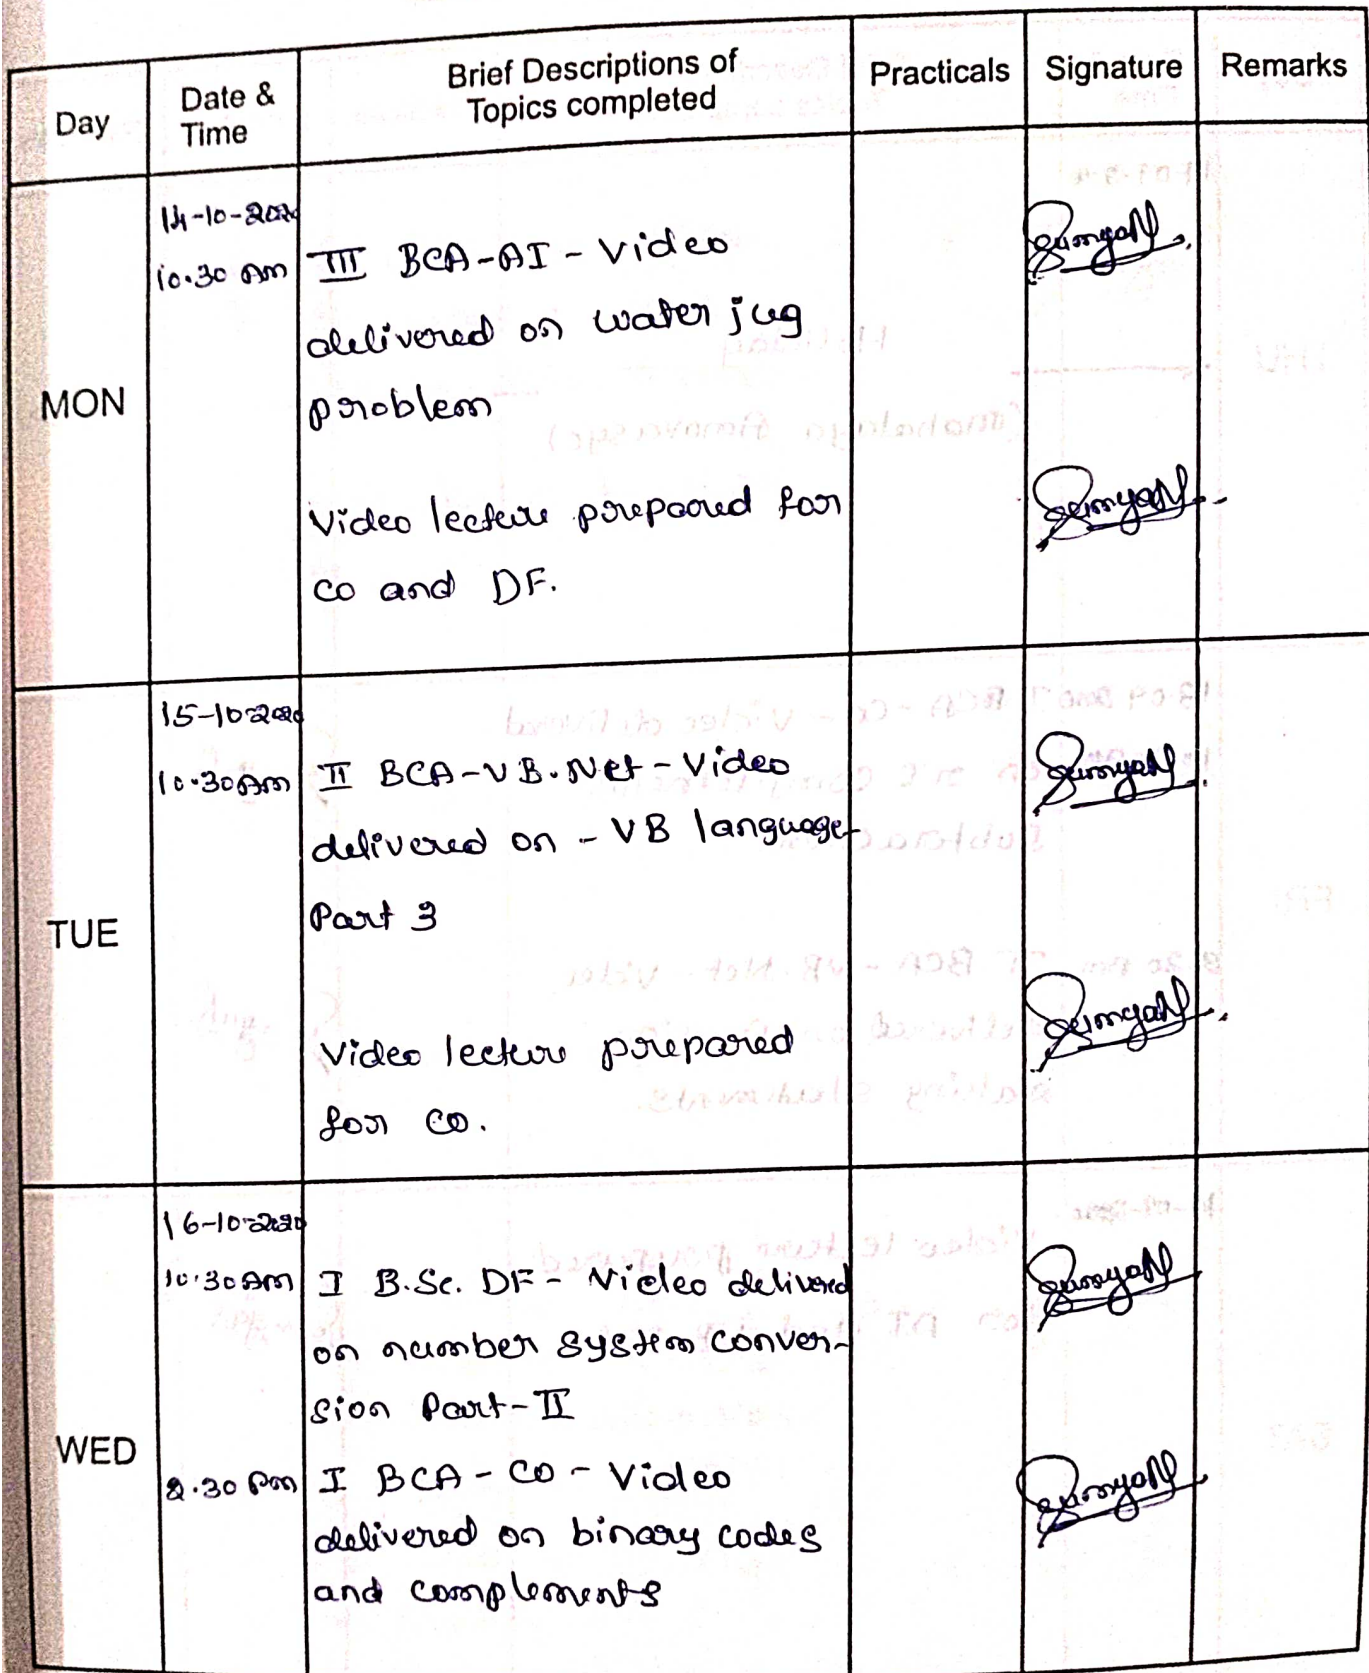 Day
Date &
Time
Brief Descriptions of
Topics completed
Practicals
Signature
Remarks
MON
14-10-2020
10.30 Am
III BCA-AI - Video
delivered on water jug
problem
Video lecture prepared for
CO and DF.
TUE
15-10-2020
10.30Am
II BCA-VB.Net - Video
delivered on - VB language-
Part 3
Video lecture prepared
for CO.
WED
16-10-2020
10.30Am
I B.Sc. DF - Video delivered
on number system conver-
sion Part-II
2.30 Pm
I BCA - CO - Video
delivered on binary codes
and complements